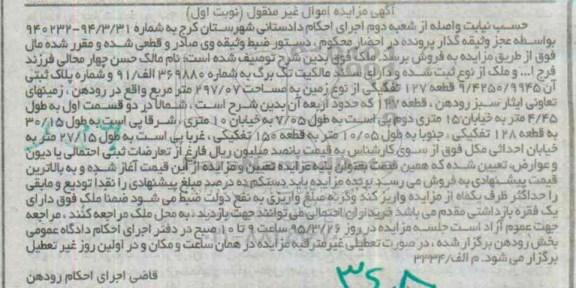 آگهی مزایده اموال غیر منقول (نوبت اول)
حسب نیابت واصله از شعبه دوم اجرای احکام دادستانی شهرستان کرج به شماره ۹۴/۳/۳۱-۹۴۰۲۳۲
بواسطه عجز وثیقه گذار پرونده در احضار محکوم، دستور ضبط وثیقه وی صادر و قطعی شده و مقرر شده مال
فوق از طریق مزایده به فروش برسد. ملک فوق بدین شرح توصیف شده است: نام مالک حسن چهار محالی فرزند
فرج ا... و ملک از نوع ثبت شده و دارای سند مالکیت تک برگ به شماره ۳۶۹۸۸۰ الف/۹۱ و شماره پلاک ثبتی
آن ۹/۴۲۵۰/۹۹۴۵ قطعه ۱۲۷ تفکیکی از نوع زمین به مساحت ۲۹۷/۰۷ متر مربع واقع در رودهن، زمینهای
تعاونی ایثار سبز رودهن، قطعه ۱۲۷ که حدود اربعه آن بدین شرح است، شمالا در دو قسمت اول به طول
۴/۴۵ متر به خیابان ۱۵ متری دوم پی است به طول ۷/۰۵ به خیابان ۱۰ متری، شرقا پی است به طول ۳۰/۱۵
به قطعه ۱۲۸ تفکیکی، جنوبا به طول ۱۰/۰۵ متر به قطعه ۱۵۰ تفکیکی، غربا پی است به طول ۲۷/۱۵ متر به
خیابان احداثی مکل فوق از سوی کارشناس به قیمت پانصد میلیون ریال فارغ از تعارضات ثبتی احتمالی یا دیون
و عوارض، تعیین شده که همین قیمت بعنوان پایه مزایده تعیین و مزایده از این قیمت آغاز شده و به بالاترین
قیمت پیشنهادی به فروش می رسد برنده مزایده باید دستکم ده درصد مبلغ پیشنهادی را نقدا تودیع و مابقی
را حداکثر ظرف یکماه از مزایده واریز کند وگرنه مبلغ واریزی به نفع دولت ضبط می شود ضمنا ملک فوق دارای
یک فقره بازداشتی مقدم می باشد خریداران احتمالی می توانند جهت بازدید، به محل ملک مراجعه کنند، مراجعه
جهت عموم آزاد است جلسه مزایده در روز ۹۵/۳/۲۶ ساعت ۹ تا ۱۰ صبح در دفتر اجرای احکام دادگاه عمومی
بخش رودهن برگزار شده، در صورت تعطیلی غیر مترقبه مزایده در همان ساعت و مکان و در اولین روز غیر تعطیل
برگزار می شود. م الف/۳۳۳۴
قاضی اجرای احکام رودهن